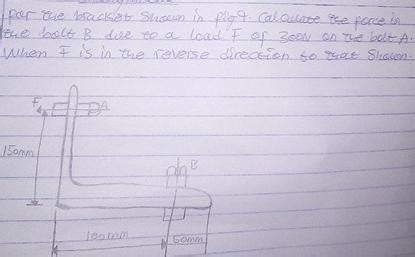 for the bracket shown in fig 9. Calculate the force in
the bolt B due to a load F of 300N on the bolt A.
When F is in the reverse direction to that shown.
F
A
B
150mm
100mm
50mm